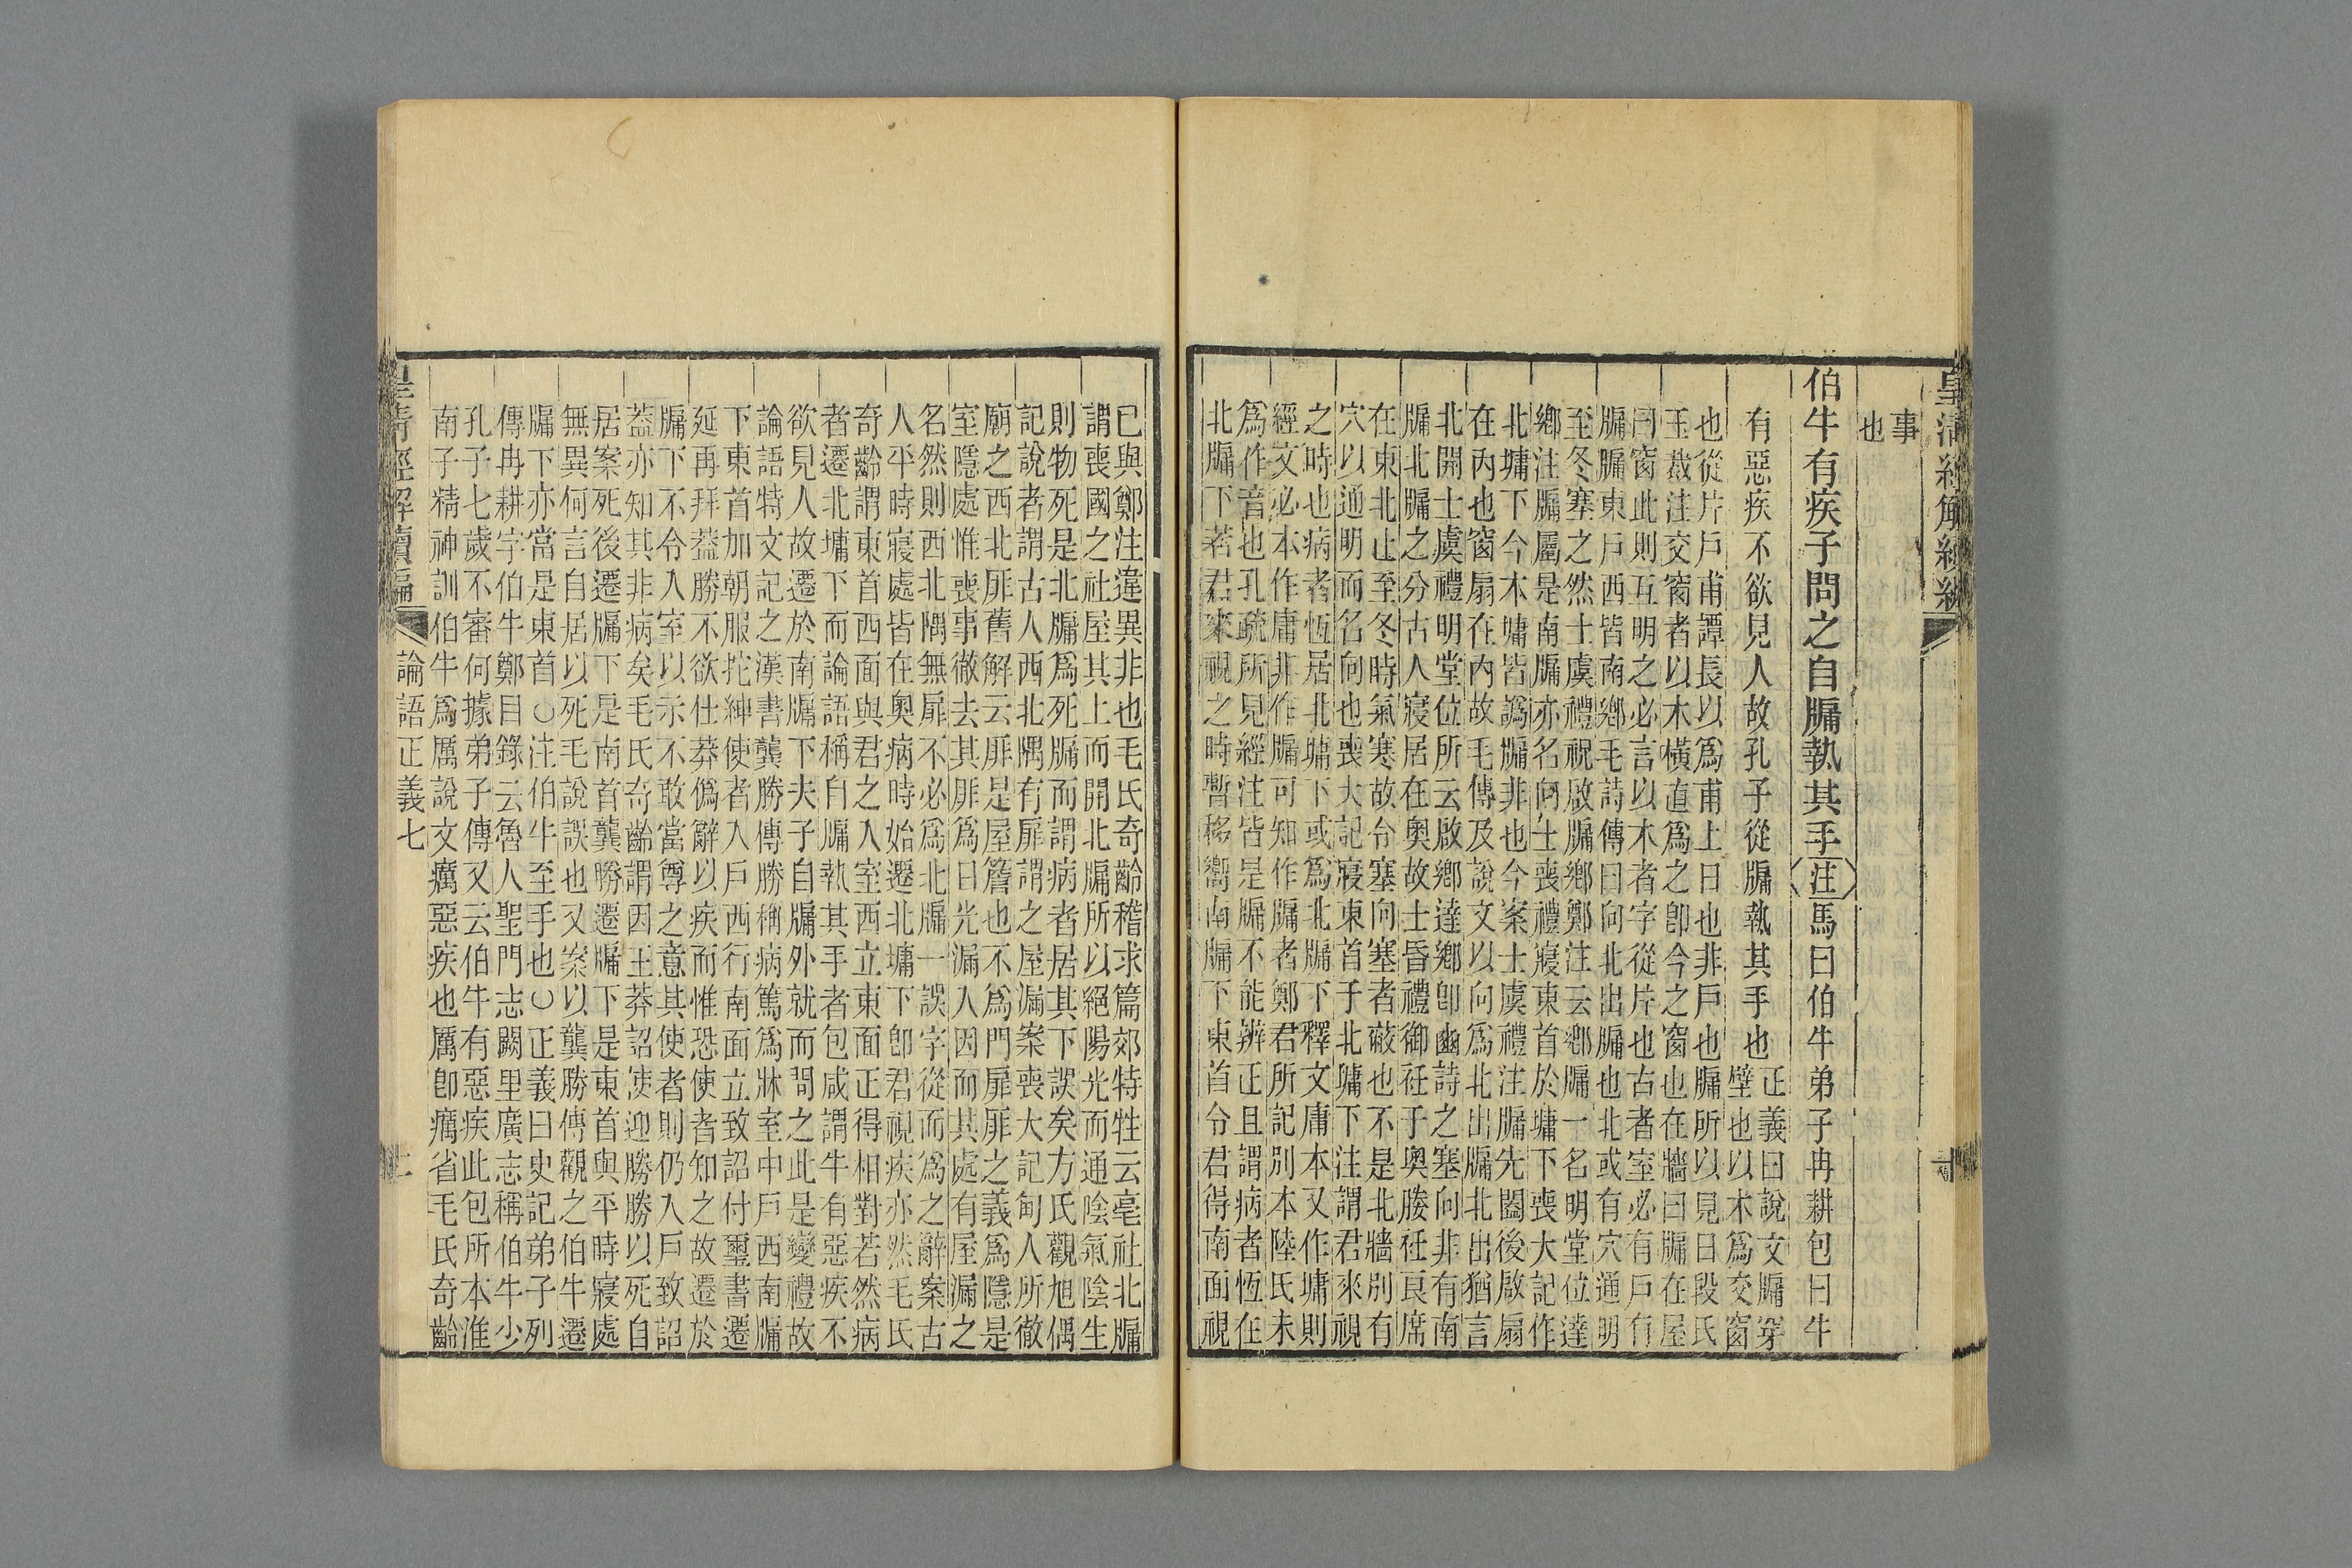 皇清經解續編
事
也
伯牛有疾子問之自牖執其手注馬曰伯牛弟子冉耕包曰牛
有惡疾不欲見人故孔子從牖執其手也
正義曰說文牖穿
壁也以木爲交窗
也從片戶甫譚長以爲甫上日也非戶也牖所以見日段氏
玉裁注交窗者以木橫直爲之卽今之窗也在牆曰牖在屋
曰窗此則互明之必言以木者字從片也古者室必有戶有
牖牖東戶西皆南鄉毛詩傳曰向北出牖也北或有穴通明
至冬塞之然士虞禮祝啟牖鄉鄭注云鄉牖一名明堂位達
鄉注牖屬是南牖亦名向士喪禮寢東首於墉下喪大記作
北墉下今本墉皆譌牖非也今案士虞禮注牖先闔後啟扇
在內也窗扇在內故毛傳及說文以向爲北出牖北出猶言
北開士虞禮明堂位所云啟鄉達鄉卽豳詩之塞向非有南
牖北牖之分古人寢居在奧故士昏禮御衽于奧媵衽良席
在東北止至冬時氣寒故令塞向塞者蔽也不是北牆別有
穴以通明而名向也喪大記寢東首于北墉下注謂君來視
之時也病者恆居北墉下或爲北牖下釋文庸本又作墉則
經文必本作庸非作牖可知作牖者鄭君所記別本陸氏未
爲作音也孔疏所見經注皆是牖不能辨正且謂病者恆在
北牖下若君來視之時暫移嚮南牖下東首令君得南面視
已與鄭注違異非也毛氏奇齡稽求篇郊特牲云亳社北牖
謂喪國之社屋其上而開北牖所以絕陽光而通陰氣陰生
則物死是北牖爲死牖而謂病者居其下誤矣方氏觀旭偶
記說者謂古人西北隅有扉謂之屋漏案喪大記甸人所徹
廟之西北厞舊解云厞是屋簷也不爲門扉厞之義爲隱是
室隱處惟喪事徹去其厞爲日光漏入因而其處有屋漏之
名然則西北隅無扉不必爲北牖一誤字從而爲之辭案古
人平時寢處皆在奧病時始遷北墉下卽君視疾亦然毛氏
奇齡謂東首西面與君之入室西立東面正得相對若然病
者遷北墉下而論語稱自牖執其手者包咸謂牛有惡疾不
欲見人故遷於南牖下夫子自牖外就而問之此是變禮故
論語特文記之漢書龔勝傳勝稱病篤爲牀室中戶西南牖
下東首加朝服拕紳使者入戶西行南面立致詔付璽書遷
延再拜葢勝不欲仕莽僞辭以疾而惟恐使者知之故遷於
牖下不令入室以示不敢當尊之意其使者則仍入戶致詔
葢亦知其非病矣毛氏奇齡謂因王莽詔使迎勝勝以死自
居案死後遷牖下是南首龔勝遷牖下是東首與平時寢處
無異何言自居以死毛說誤也又案以龔勝傳觀之伯牛遷
牖下亦當是東首〇注伯牛至手也〇正義曰史記弟子列
傳冉耕字伯牛鄭目錄云魯人聖門志闕里廣志稱伯牛少
孔子七歲不審何據弟子傳又云伯牛有惡疾此包所本淮
南子精神訓伯牛爲厲說文癘惡疾也厲卽癘省毛氏奇齡
皇清經解續編 論語正義七